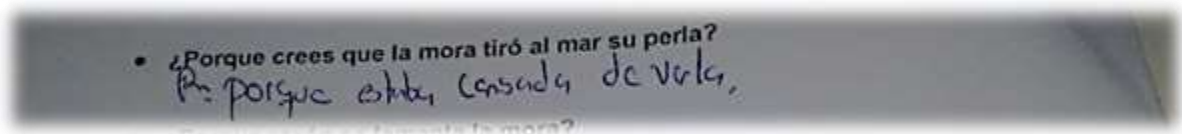 • ¿Porque crees que la mora tiró al mar su perla?
R: porque estaba cansada de verla,
la mora?